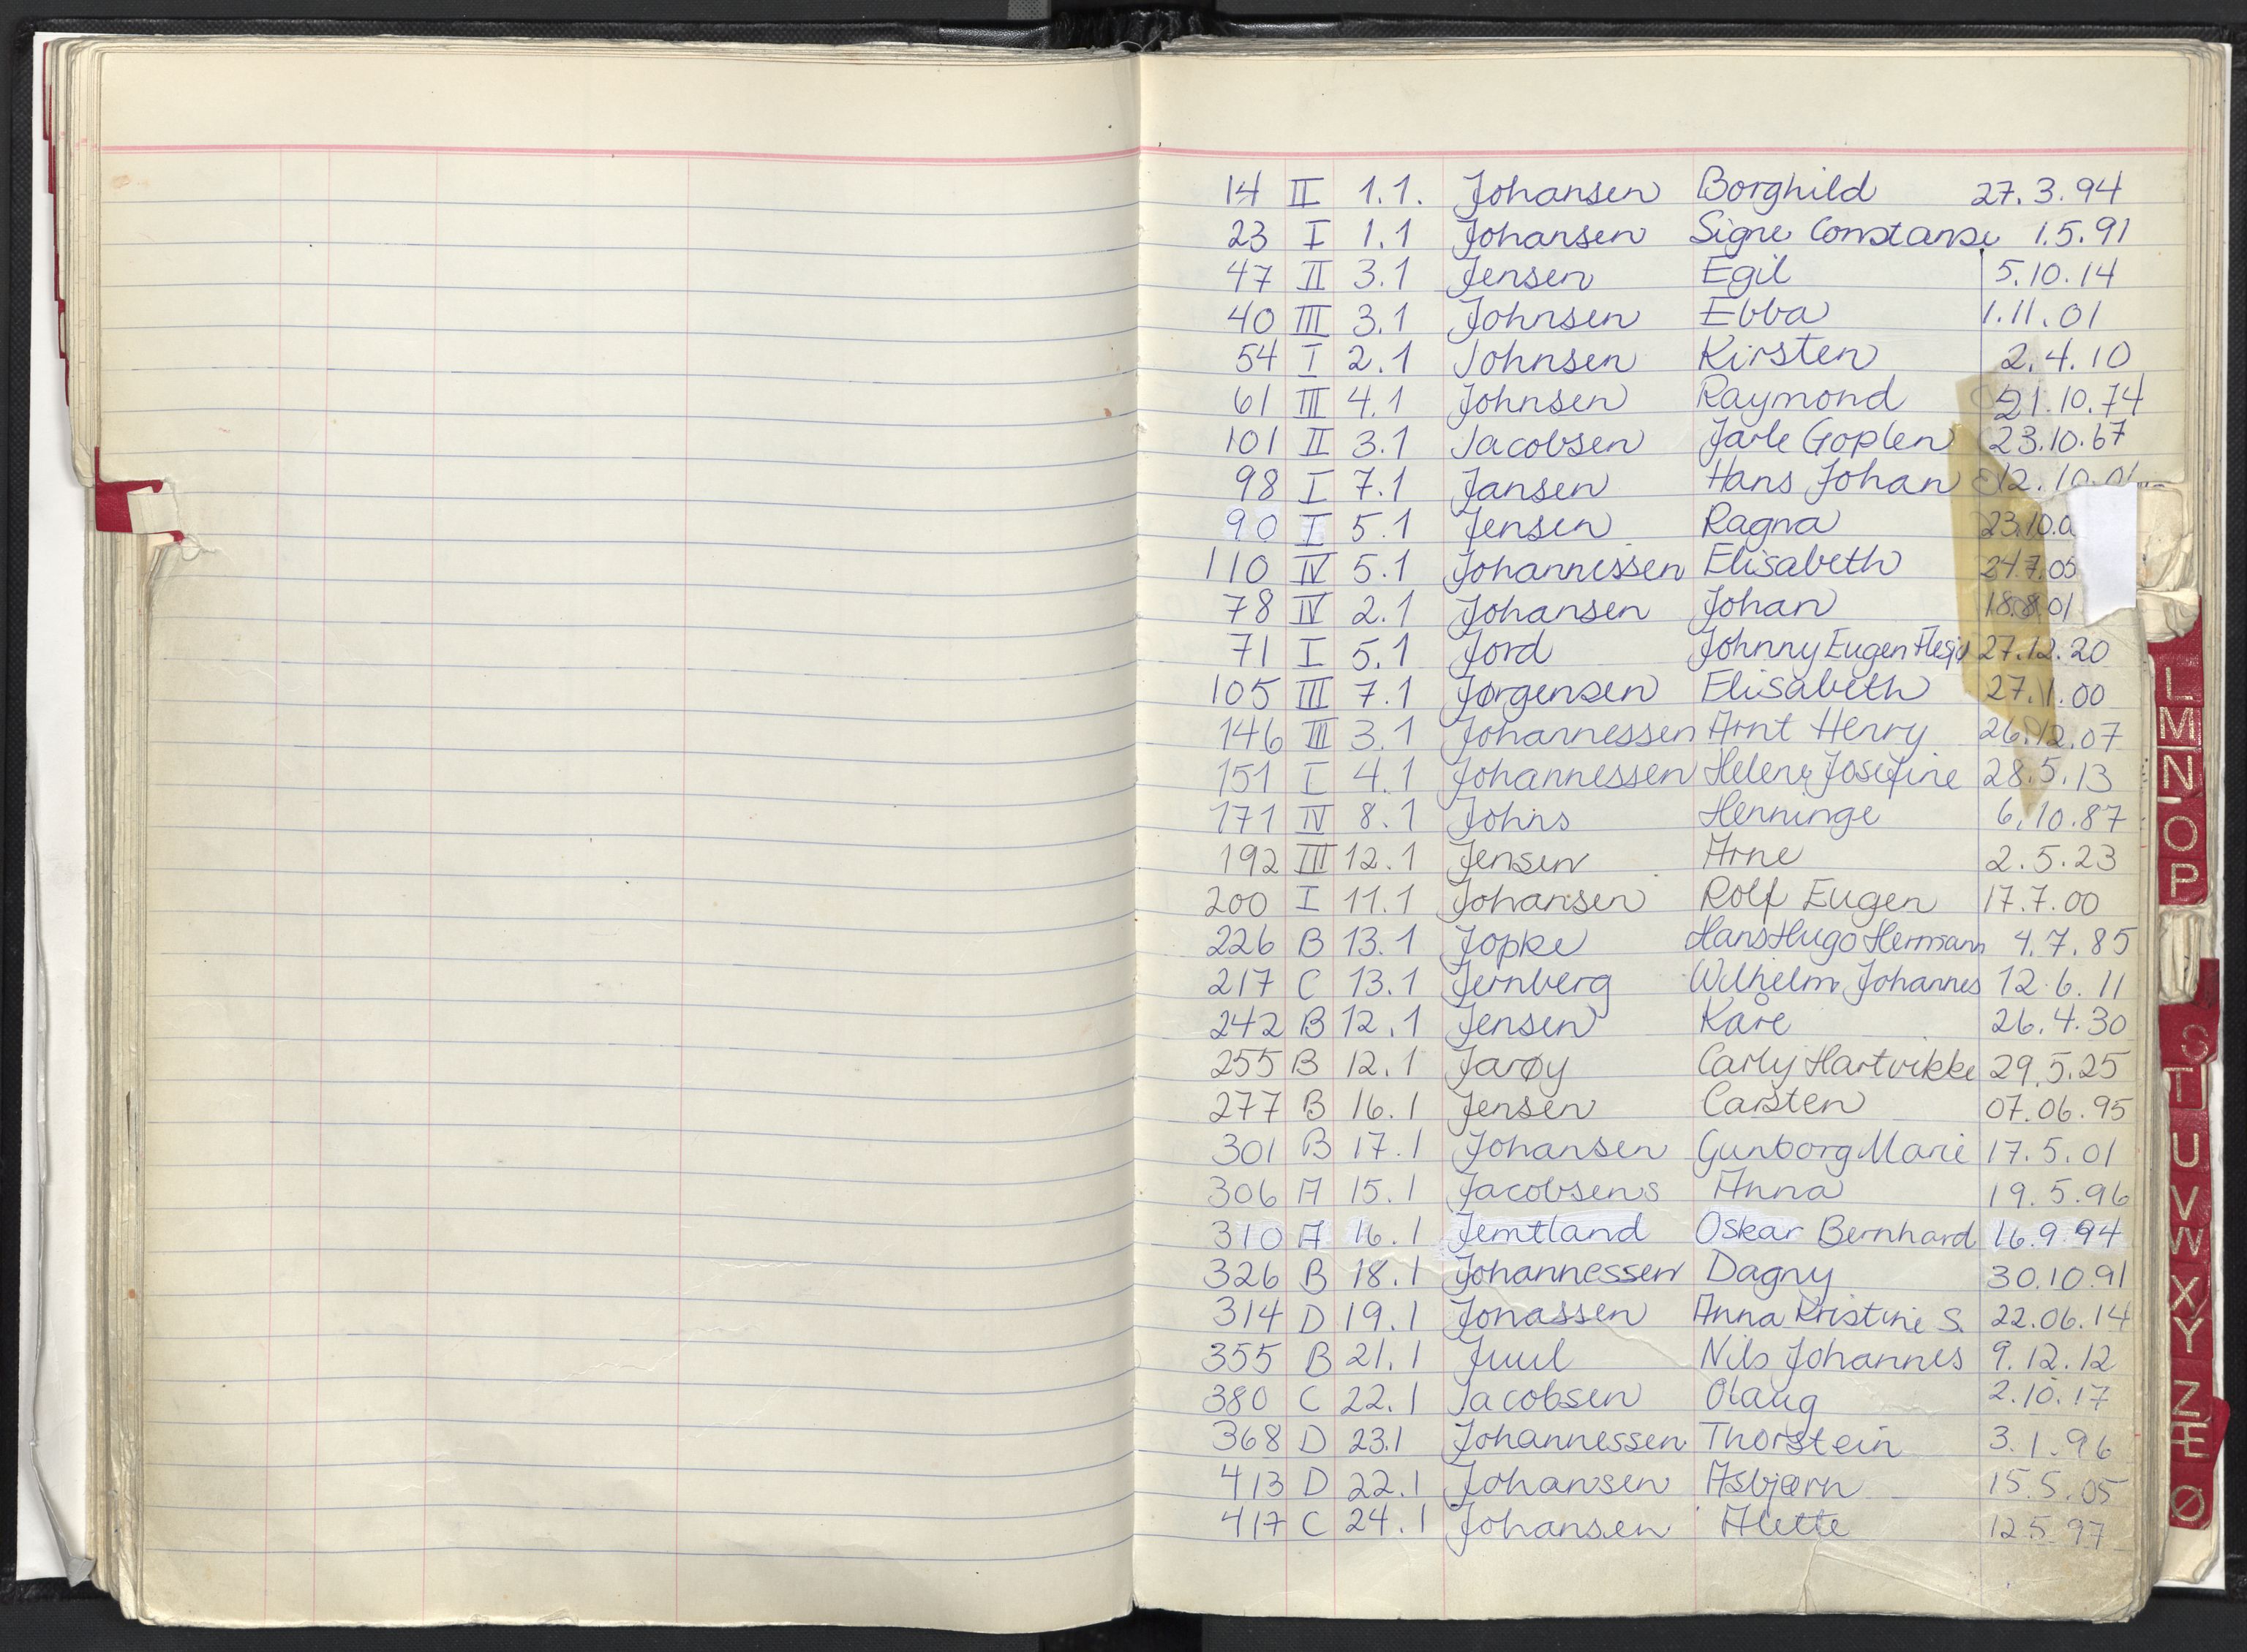 14 II 1.1. Johansen Borghild 27.3.94
23 I 1.1 Johansen Signe Constanse 1.5.91
47 II 3.1 Jensen Egil 5.10.14
40 III 3.1 Johnsen Ebba 1.11.01
54 I 2.1 Johnsen Kirsten 2.4.10
61 III 4.1 Johnsen Raymond 21.10.74
101 II 3.1 Jacobsen Jarle Goplen 23.10.67
98 I 7.1 Jansen Hans Johan 12.10.01
90 I 5.1 Jensen Ragna 23.10.0
110 IV 5.1 Johannessen Elisabeth 24.7.05
78 IV 2.1 Johansen Johan 18.8.01
71 I 5.1 Jord Johnny Eugen 27.12.20
105 III 7.1 Jørgensen Elisabeth 27.1.00
146 III 3.1 Johannessen Arnt Henry 26.12.07
151 I 4.1 Johannessen Helene Josefine 28.5.13
171 IV 8.1 Johns Henninge 6.10.87
192 III 12.1 Jensen Arne 2.5.23
200 I 11.1 Johansen Rolf Eugen 17.7.00
226 B 13.1 Jopke Hans Hugo Hermann 4.7.85
217 C 13.1 Jernberg Wilhelm Johannes 12.6.11
242 B 12.1 Jensen Kåre 26.4.30
255 B 12.1 Jarøy Carly Hartvikke 29.5.25
277 B 16.1 Jensen Carsten 07.06.95
301 B 17.1 Johansen Gunborg Marie 17.5.01
306 A 15.1 Jacobsens Anna 19.5.96
310 A 16.1 Jemtland Oskar Bernhard 16.9.94
326 B 18.1 Johannessen Dagny 30.10.91
314 D 19.1 Jonassen Anna Kristine S. 22.06.14
355 B 21.1 Juul Nils Johannes 9.12.12
380 C 22.1 Jacobsen Olaug 2.10.17
368 D 23.1 Johannessen Thorstein 3.1.96
413 D 22.1 Johansen Asbjørn 15.5.05
417 C 24.1 Johansen Alette 12.5.97
L
M
N
O
P
S
T
U
V
W
X
Y
Z
Æ
Ø